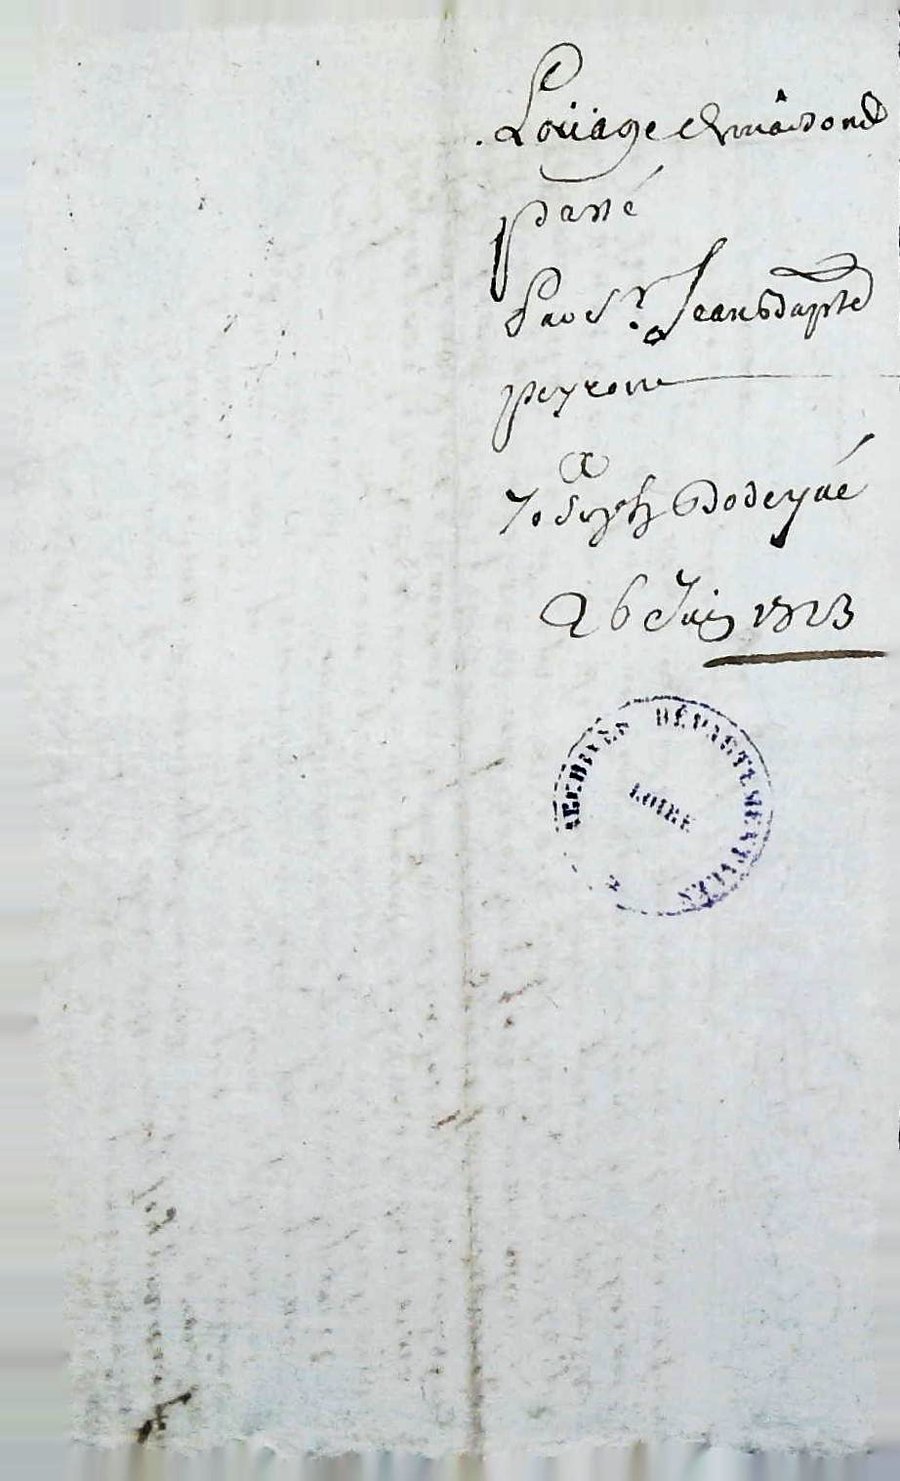 Loüage de maison
passé
Par Sr. Jean bapte
peyron
a
Joseph Bodeyué
26 Juin 1723
ARCHIVES DÉPARTEMENTALES
LOIRE